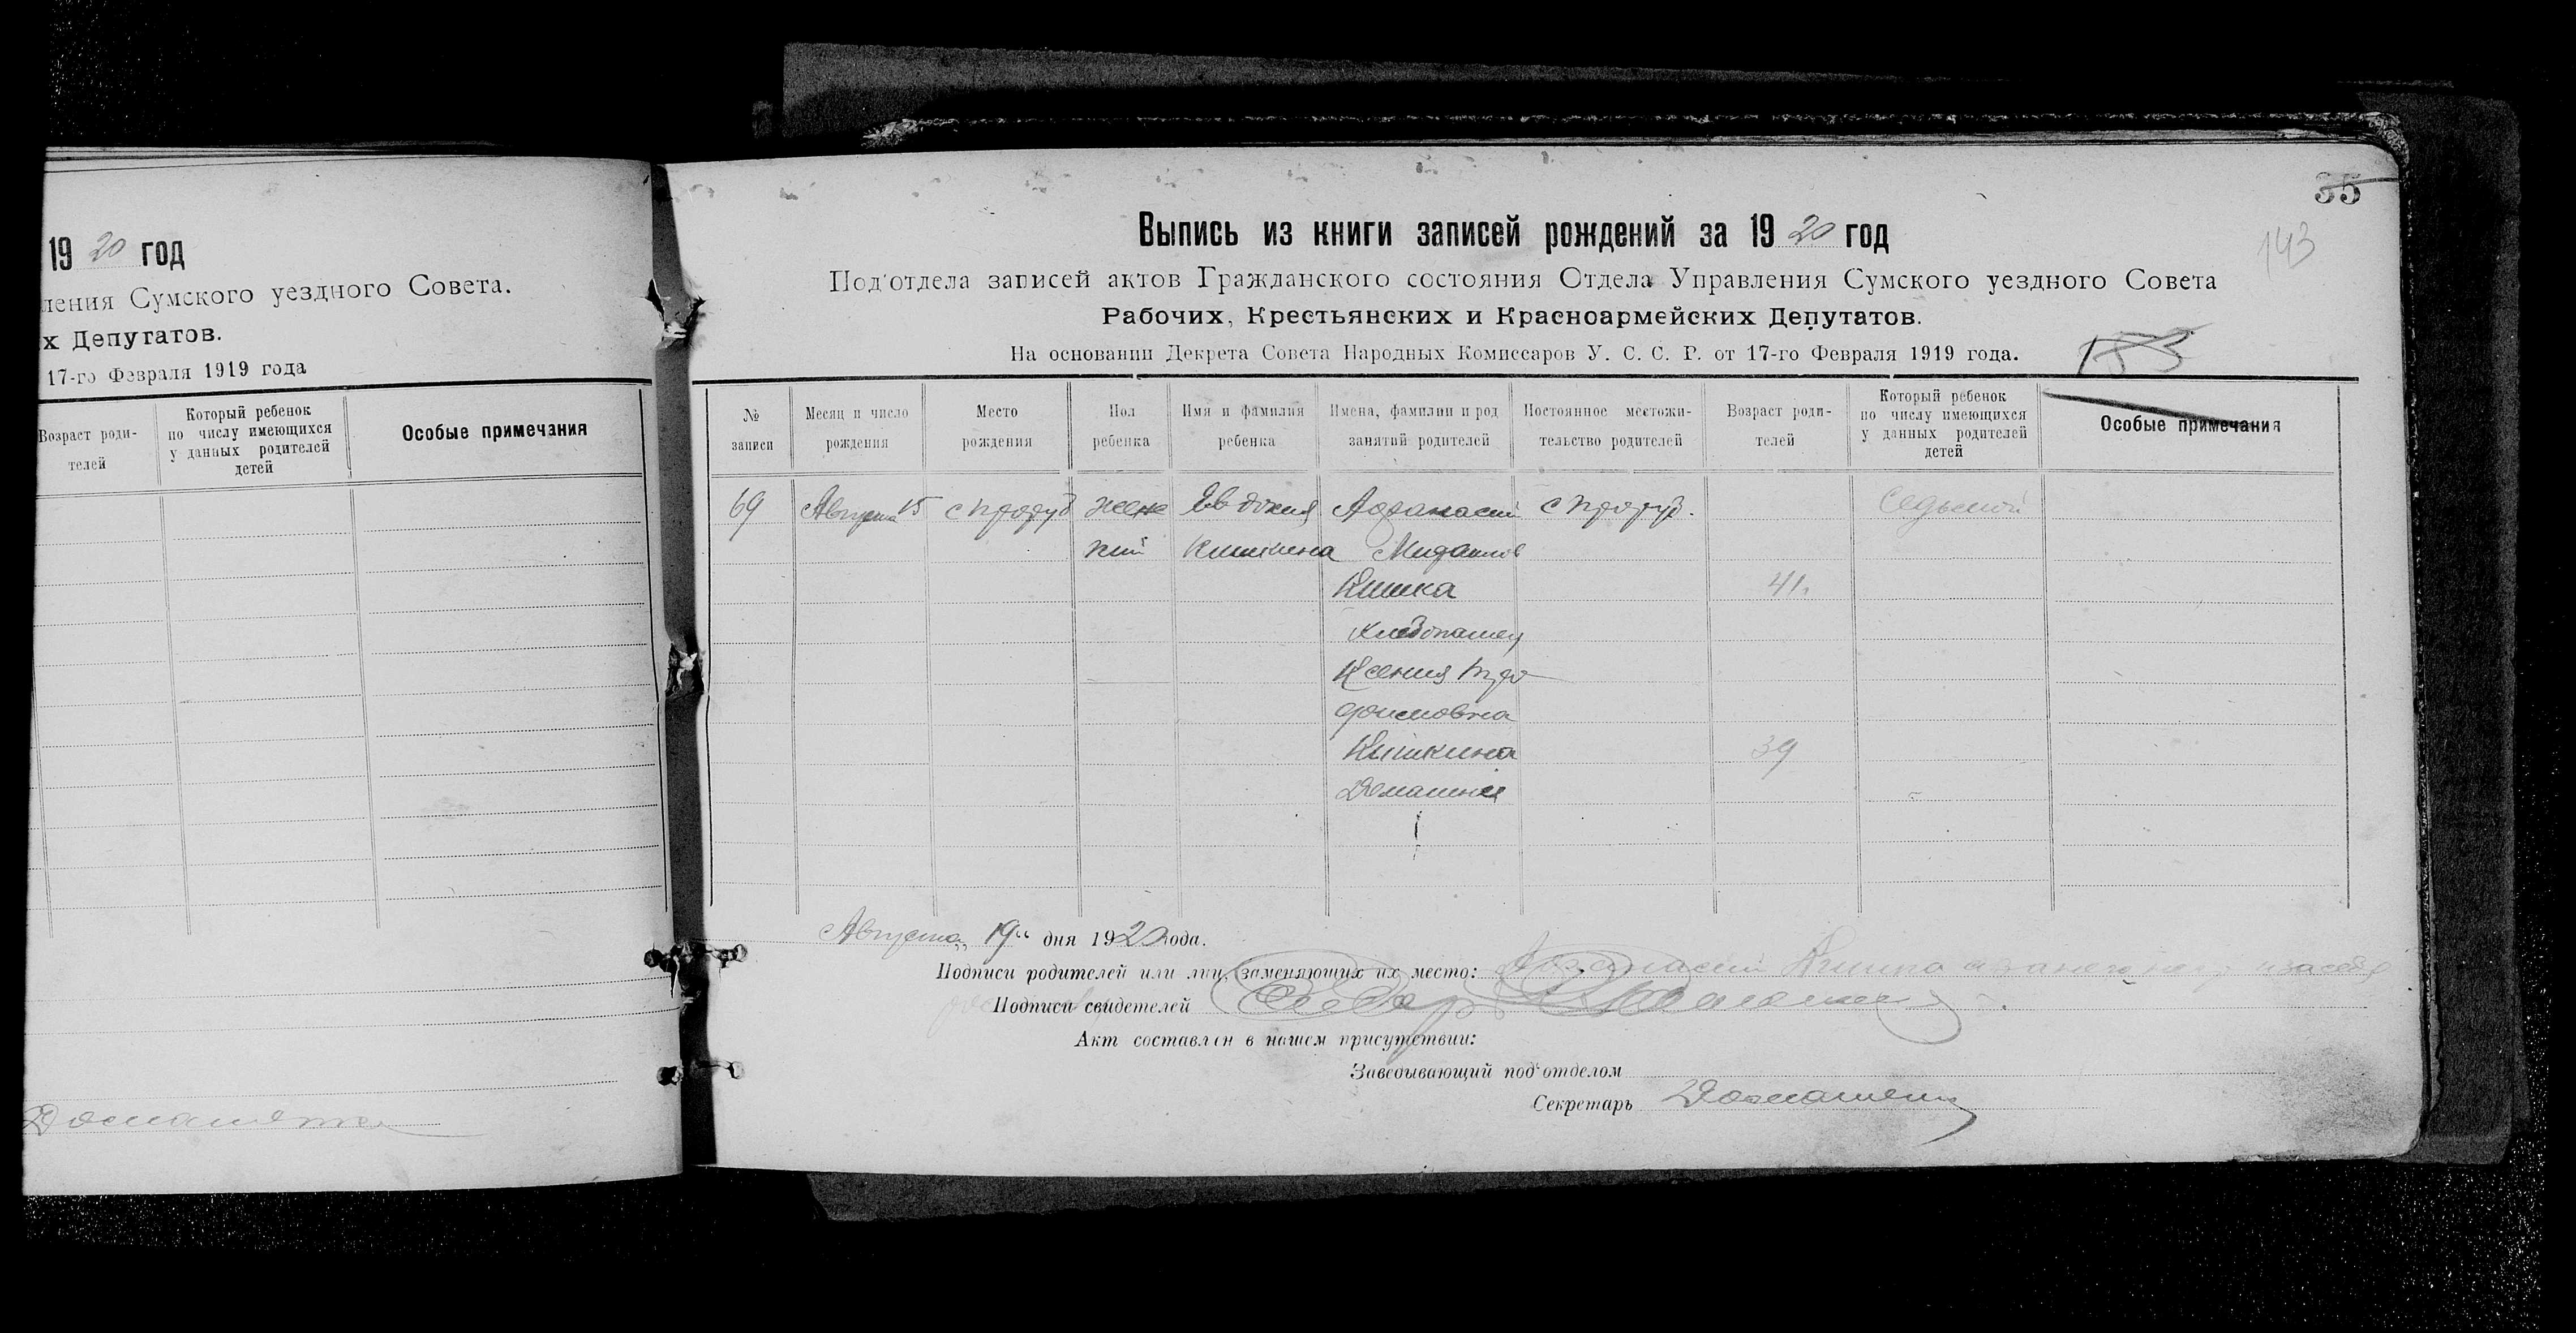 19 20 год
ления Сумского уездного Совета.
х Депутатов.
17-го Февраля 1919 года
Возраст роди-
телей
Который ребенок
по числу имеющихся
у данных родителей
детей
Особые примечания
35
143
Выпись из книги записей рождений за 19 20 год
Под'отдела записей актов Гражданского состояния Отдела Управления Сумского уездного Совета
Рабочих, Крестьянских и Красноармейских Депутатов.
На основании Декрета Совета Народных Комиссаров У. С. С. Р. от 17-го Февраля 1919 года.
№
записи
Месяц и число
рождения
Место
рождения
Пол
ребенка
Имя и фамилия
ребенка
Имена, фамилии и род
занятий родителей
Постоянное местожи-
тельство родителей
Возраст роди-
телей
Который ребенок
по числу имеющихся
у данных родителей
детей
Особые примечания
69 Августа 15 женс Евдокия Афанасий седьмой
кий Кишкина
Кишка 41
Хлебопашец
Ксения Тро
фимовна
Кишкина 39
Домашняя
Августа „19“ дня 1920 года.
Подписи родителей или лиц, заменяющих их место: Афанасий Кишка
Подписи свидетелей
Акт составлен в нашем присутствии:
Заведывающий под'отделом
Секретарь